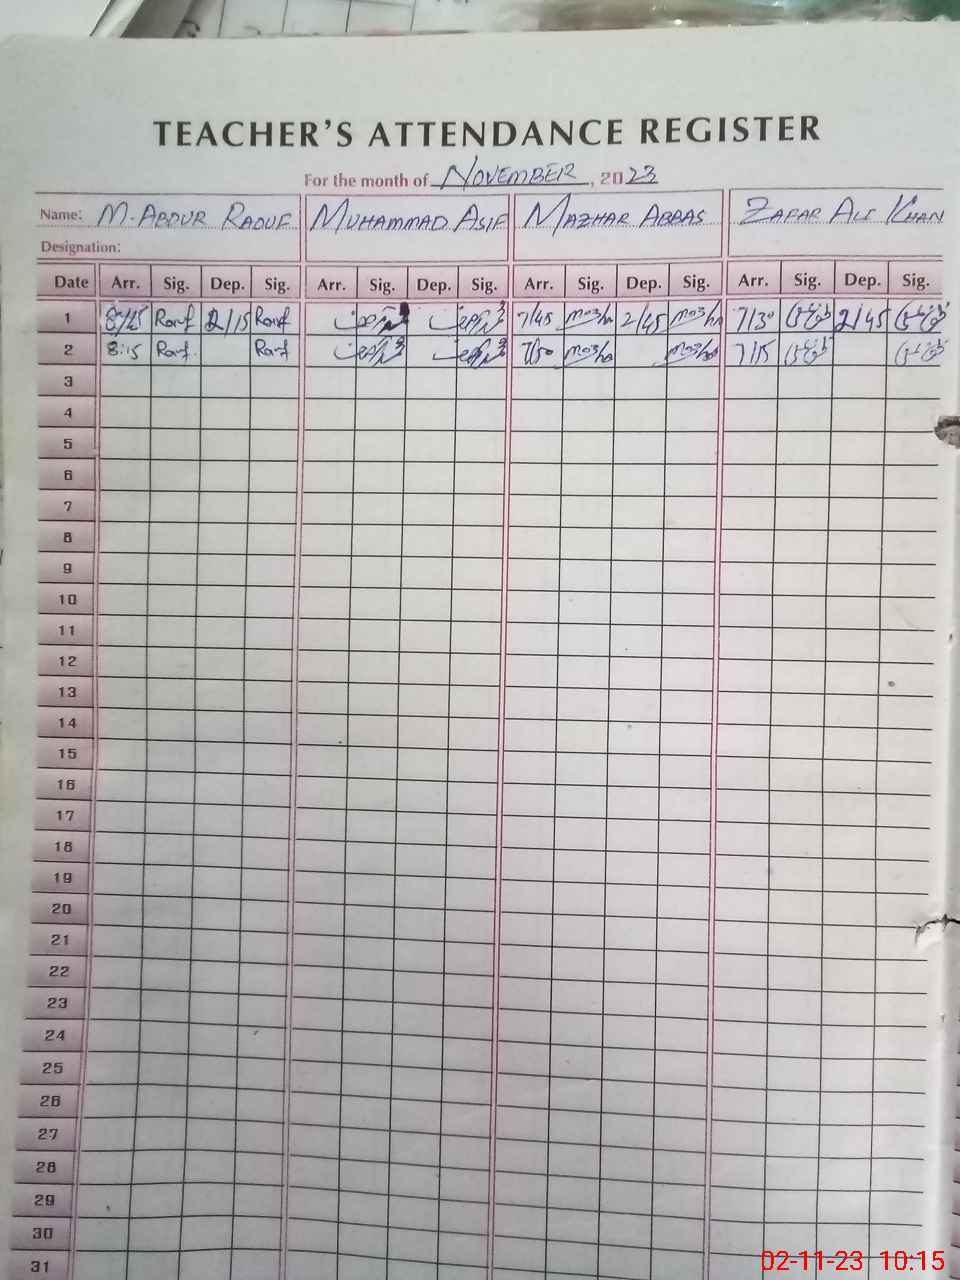 TEACHER'S ATTENDANCE REGISTER
For the month of NOVEMBER, 2023
Name: M. ABDUR RAOUF MUHAMMAD ASIF MAZHAR ABBAS ZAFAR ALI KHAN
Designation:
Date Arr. Sig. Dep. Sig. Arr. Sig. Dep. Sig. Arr. Sig. Dep. Sig. Arr. Sig. Dep. Sig.
1 2/15 7/45 2/45 7/30 2/45
2 8:15 7/50 7/15
3
4
5
6
7
8
9
10
11
12
13
14
15
16
17
18
19
20
21
22
23
24
25
26
27
28
29
30
31
02-11-23 10:15